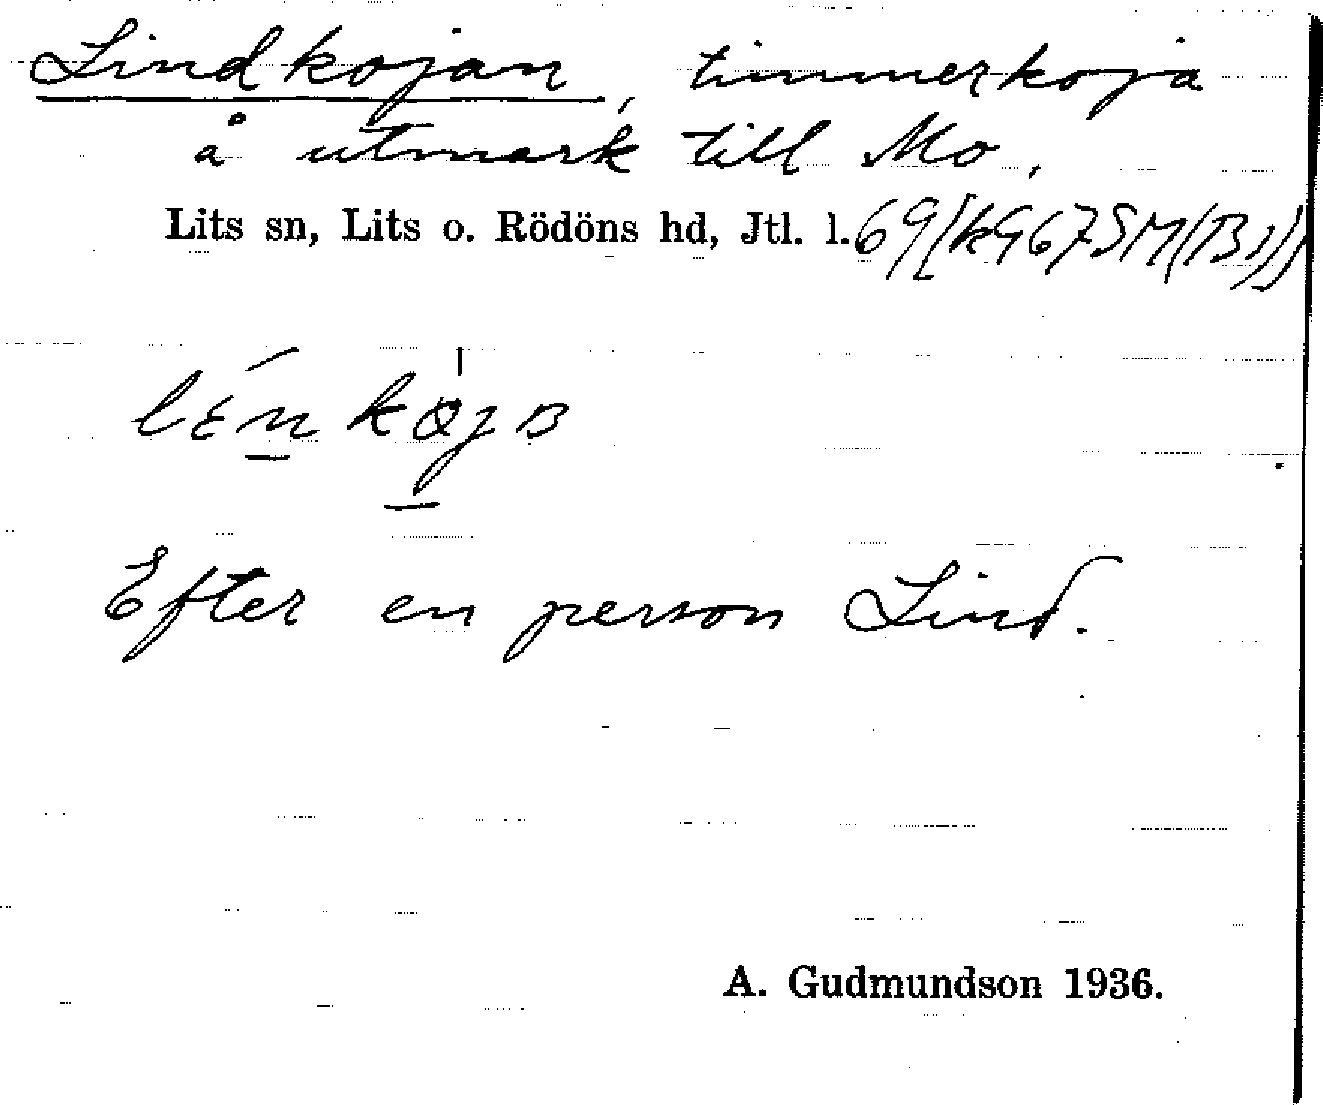 Lindkojan, timmerkoja
å utmark till Mo.
Lits sn, Lits o. Rödöns hd, Jtl. l.
Efter en person Lind.
A. Gudmundson 1936.